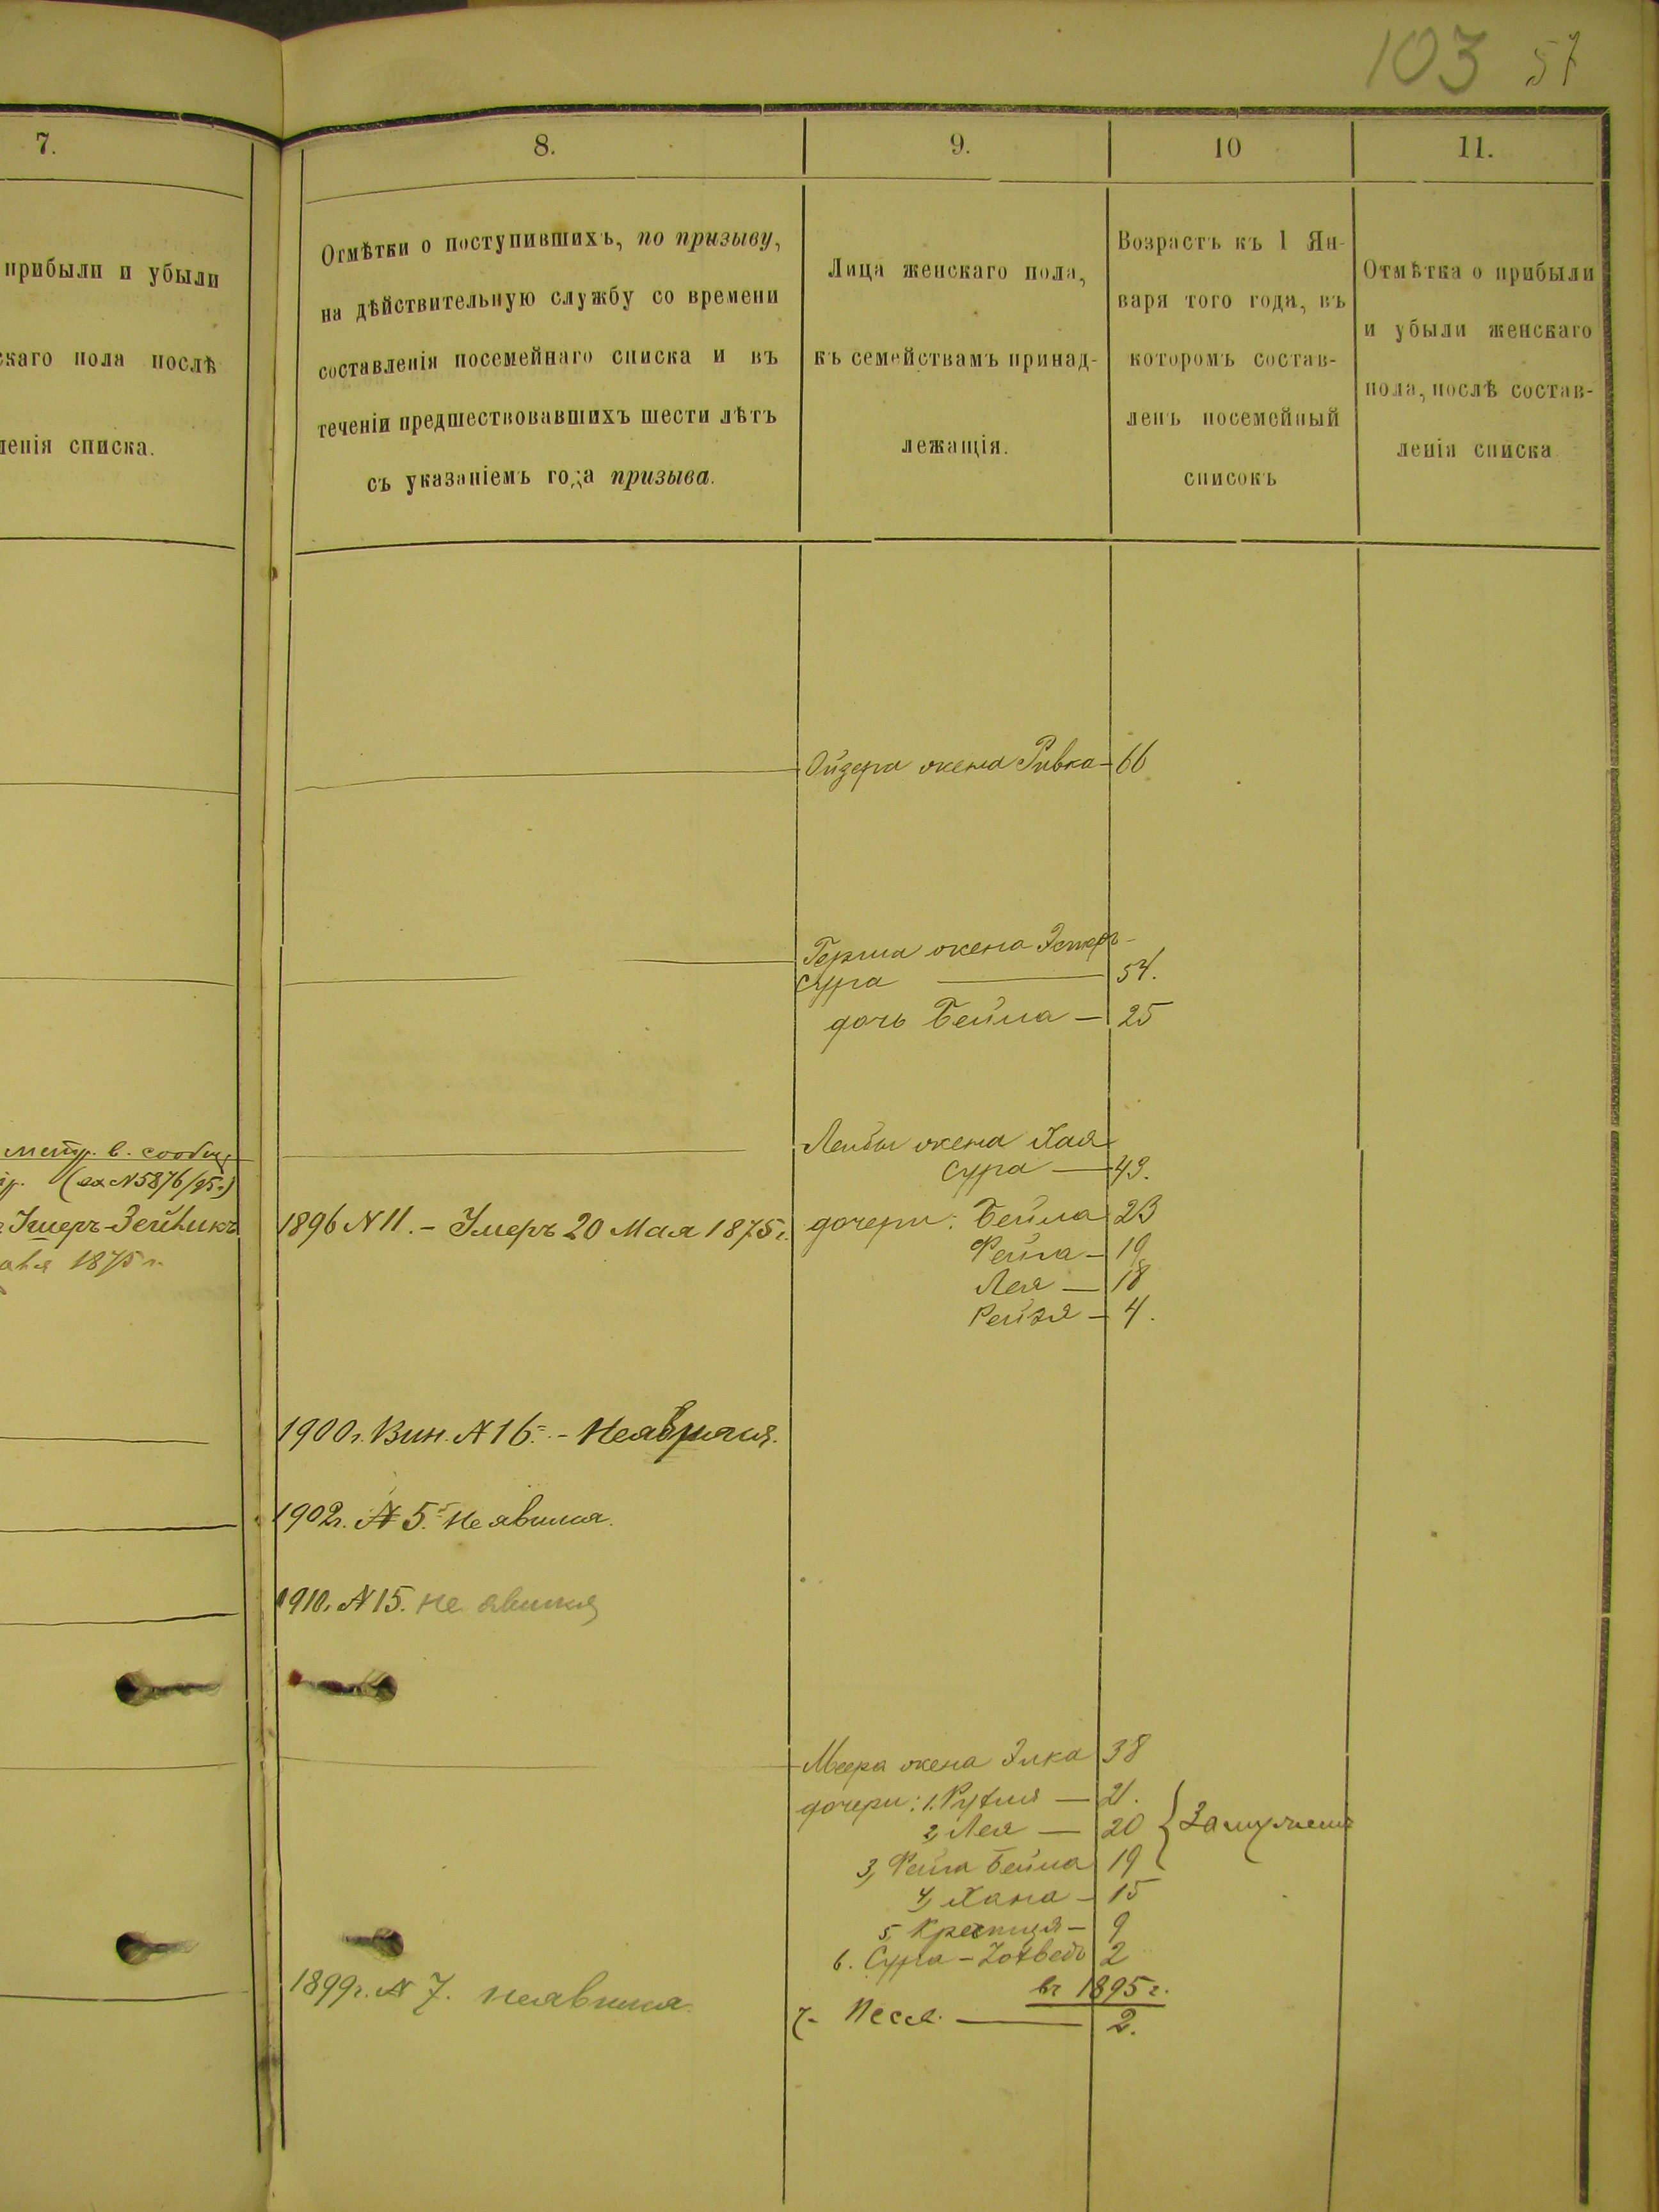 103 57
7.
8.
9.
10
11.
прибыли и убыли
скаго пола послѣ
ленія списка.
Отмѣтки о поступившихъ, по призыву,
на дѣйствительную службу со времени
составленія посемейнаго списка и въ
теченіи предшествовавшихъ шести лѣтъ
съ указаніемъ года призыва.
Лица женскаго пола,
къ семействамъ принад-
лежащія.
Возрастъ къ 1 Ян-
варя того года, въ
которомъ состав-
ленъ посемейный
списокъ
Отмѣтка о прибыли
и убыли женскаго
пола, послѣ состав-
ленія списка
Ойзера жена Ривка - 66
Герша жена Эстеръ -
Сура — 54.
дочь Бейла — 25
Лейбы жена Хая
Сура — 43.
дочери: Бейла 23
Фейга - 19
Лея — 18
Рейзя - 4.
метр. в. сообщ
(вх N 5876/95 г.)
Умеръ-Зейликъ
1875 г.
1896 N 11. - Умеръ 20 Мая 1875 г.
1900 г. Вин. N 16. - Неявился.
1902 г. N 5. Не явился.
1910. N 15. не явился
Меера жена Элка 38
дочери: 1. Рухля — 21.
2, Лея — 20 { Замужемъ
3, Фейга Бейла 19
4, Хана - 15
5, Крейнця - 9
6. Сура - Йохведъ 2
въ 1895 г.
7. Песя. — 2.
1899 г. N 7. неявился.